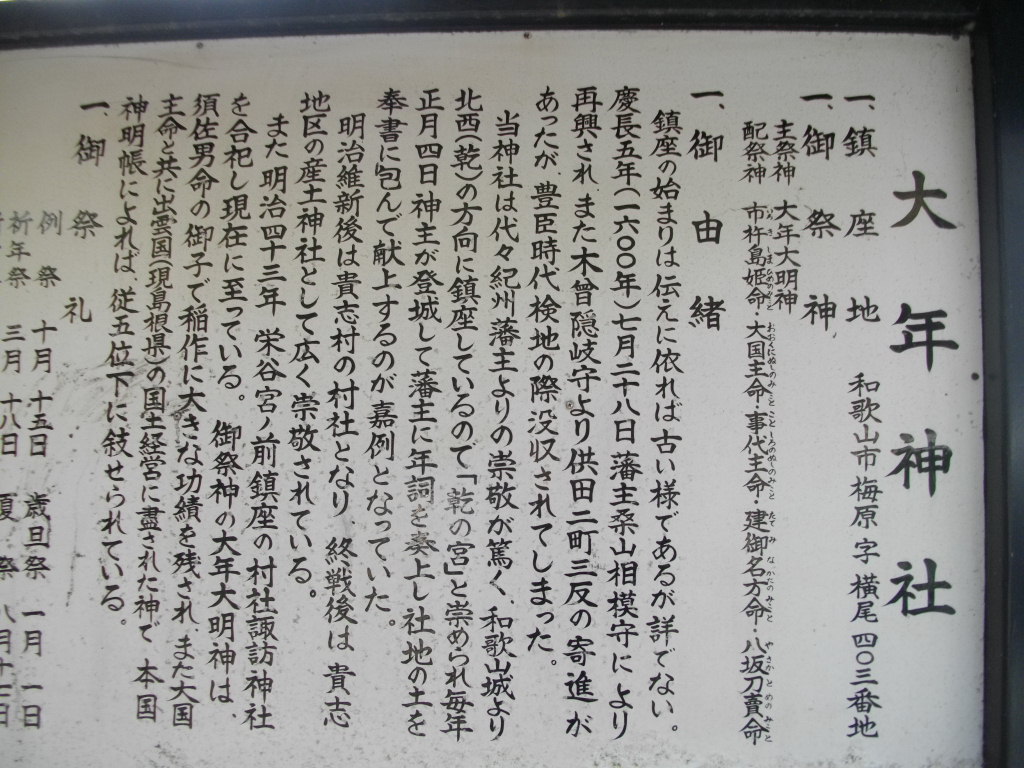 大年神社
一、鎮座地 和歌山市梅原字横尾四〇三番地
一、御祭神
主祭神 大年大明神
配祭神 市杵島姫命・大国主命・事代主命・建御名方命・八坂刀賣命
一、御由緒
鎮座の始まりは伝えに依れば古い様であるが詳でない。
慶長五年(一六〇〇年)七月二十八日藩主桑山相模守により
再興され、また木曾隠岐守より供田二町三反の寄進が
あったが、豊臣時代検地の際没収されてしまった。
当神社は代々紀州藩主よりの崇敬が篤く、和歌山城より
北西(乾)の方向に鎮座しているので「乾の宮」と崇められ毎年
正月四日神主が登城して藩主に年詞を奏上し社地の土を
奉書に包んで献上するのが嘉例となっていた。
明治維新後は貴志村の村社となり、終戦後は貴志
地区の産土神社として広く崇敬されている。
また明治四十三年 栄谷宮ノ前鎮座の村社諏訪神社
を合祀し現在に至っている。 御祭神の大年大明神は、
須佐男命の御子で稲作に大きな功績を残され、また大国
主命と共に出雲国(現島根県の国土経営に盡された神で、本国
神明帳によれば、従五位下に敍せられている。
一、御祭礼
例祭 十月十五日 歳旦祭 一月一日
祈年祭 三月十八日 夏祭 八月十七日